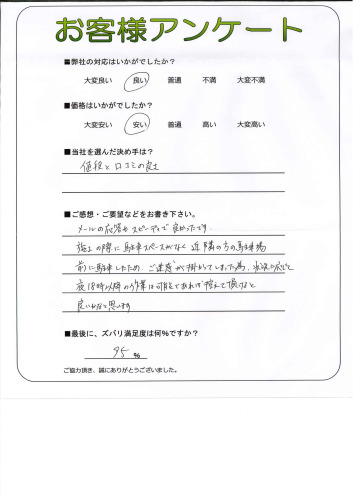 お客様アンケート
■弊社の対応はいかがでしたか?
大変良い 良い 普通 不満 大変不満
■価格はいかがでしたか?
大変安い 安い 普通 高い 大変高い
■当社を選んだ決め手は?
値段と口コミの良さ
■ご感想・ご要望などをお書き下さい。
メールの応答もスピーディで良かったです。
施工の際に駐車スペースがなく近隣の方の駐車場
前に駐車したため、ご迷惑が掛かってしまった為、状況に応じて
夜18時以降の作業は可能であれば控えて頂けると
良いかなと思います
■最後に、ズバリ満足度は何%ですか?
95 %
ご協力頂き、誠にありがとうございました。